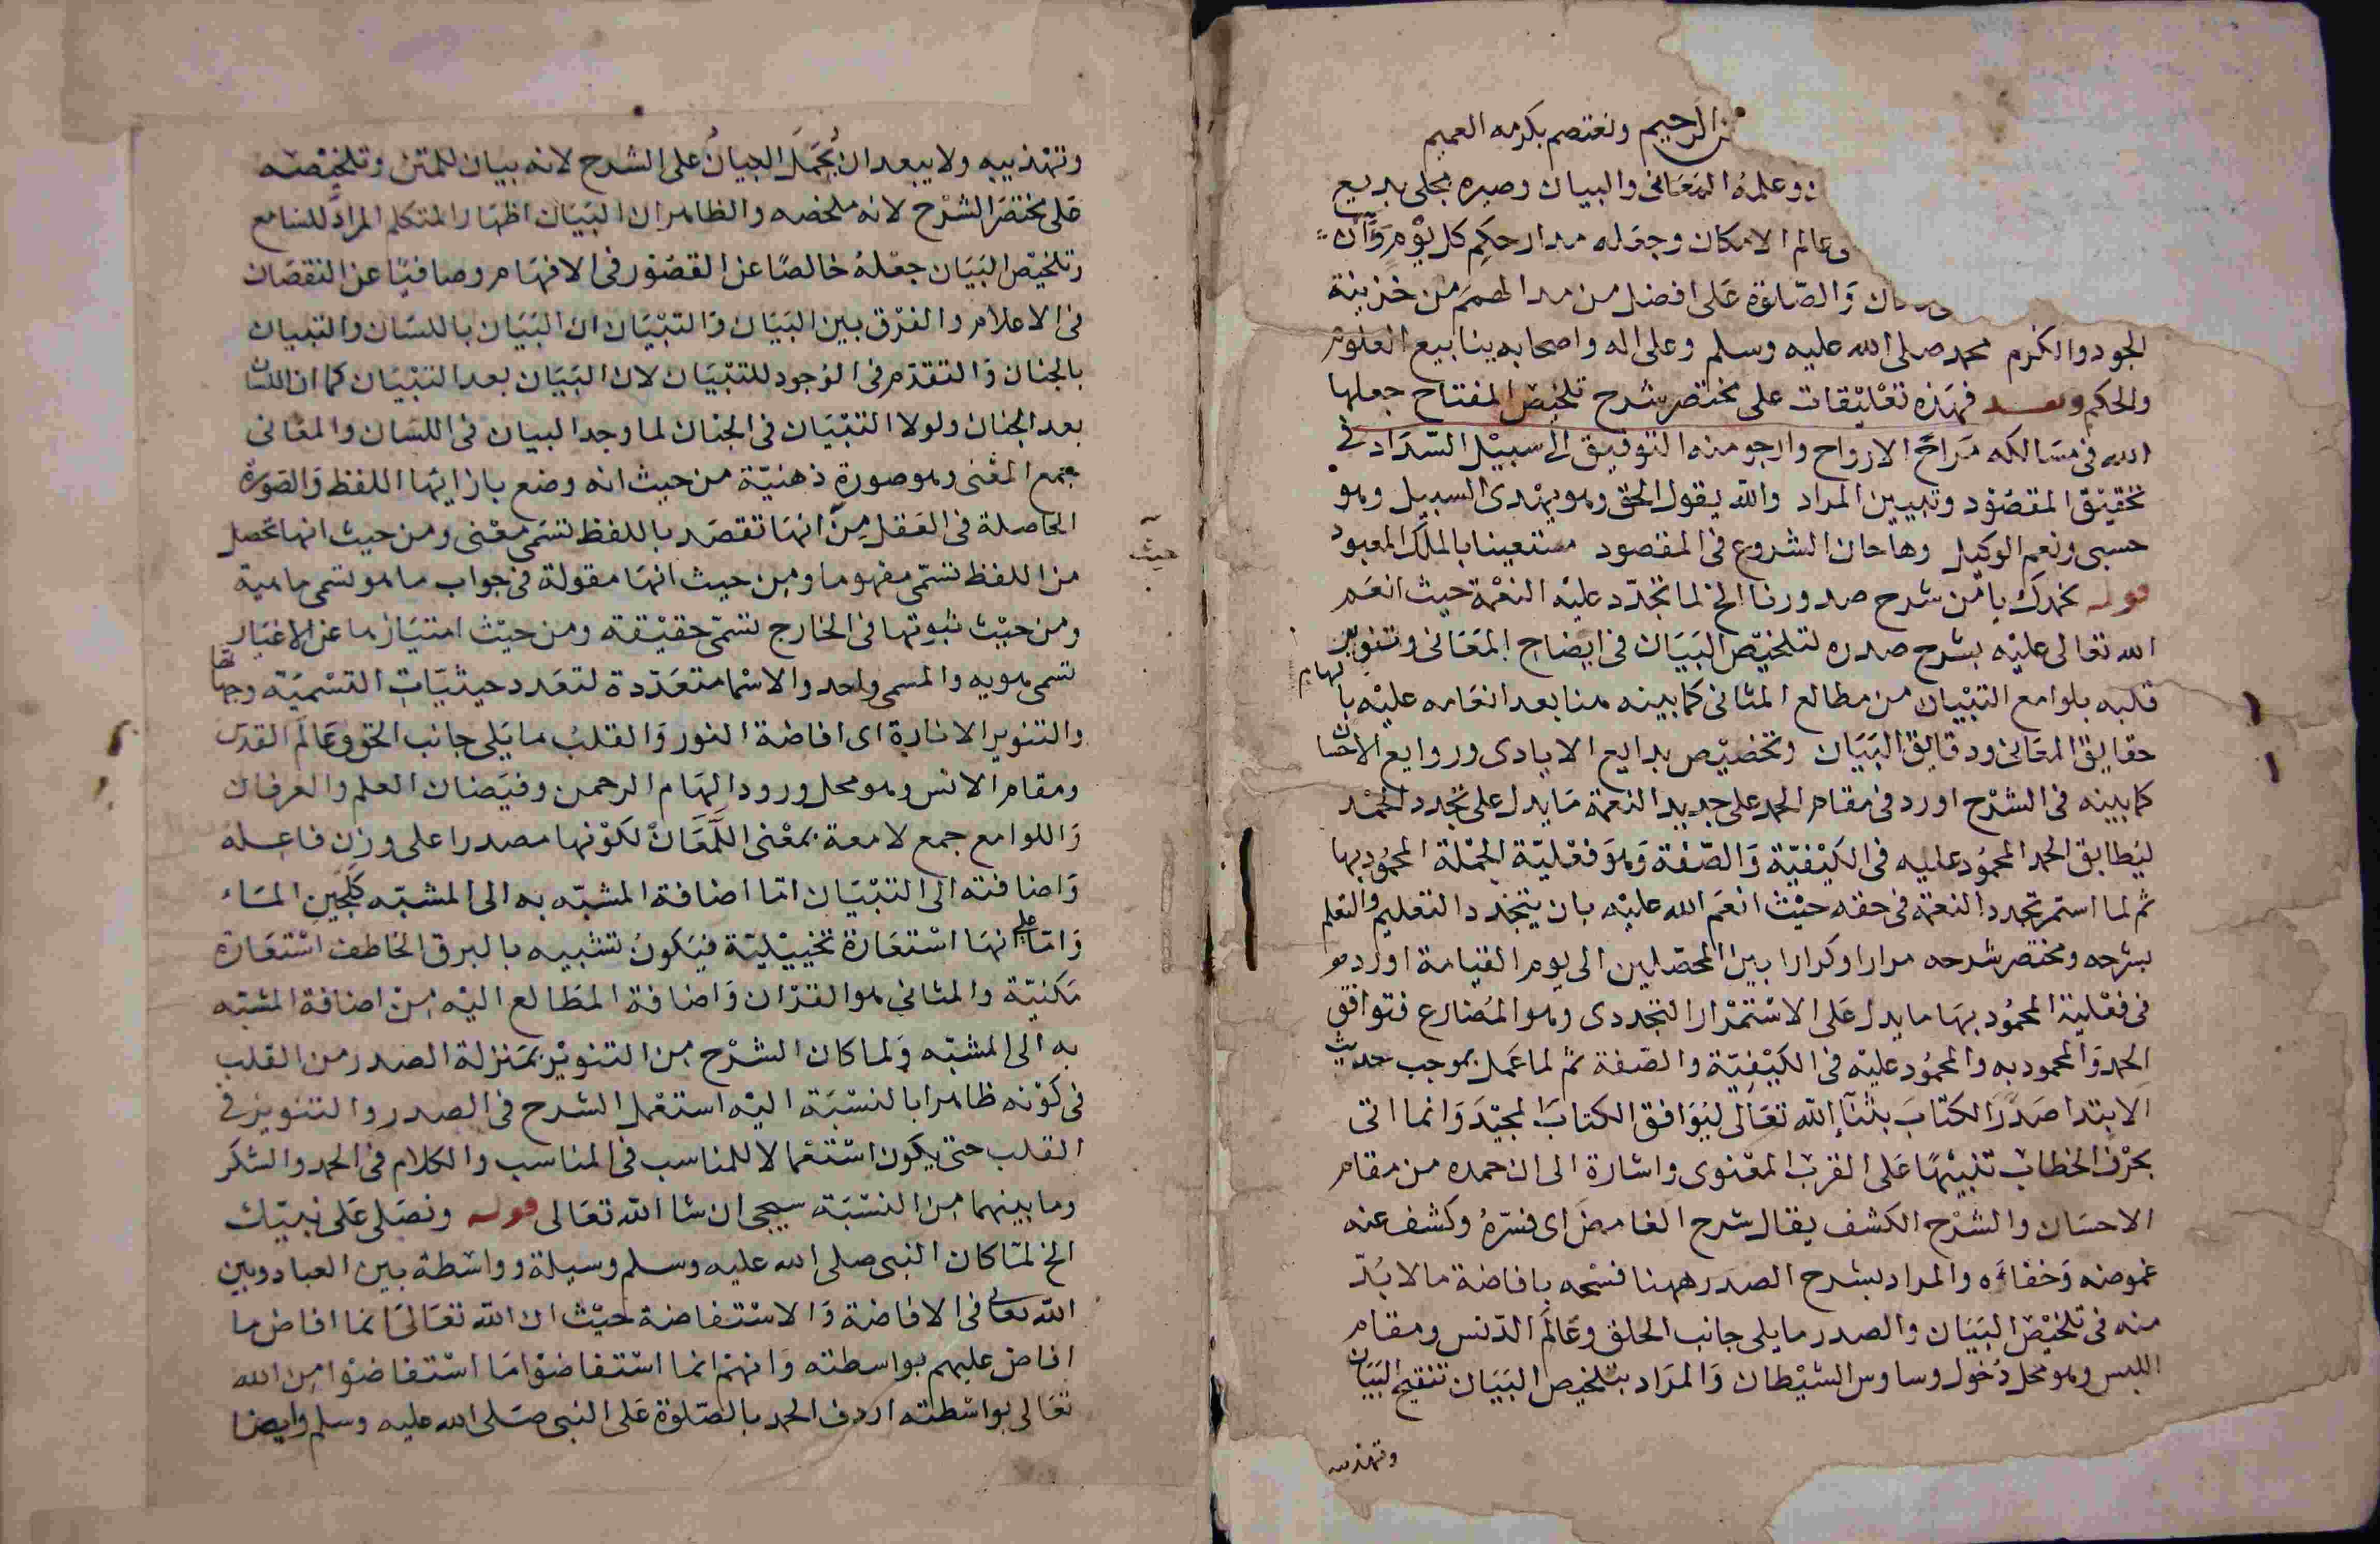 الرحيم ونعتصم بكرمه العميم
وعلمه المعانى والبيان وصيره مجلى بديع
وعالم الامكان وجعله مدار حكم كل يوم وآن
والصلوة على افضل من مدا لهمم من خزينة
الجود والكرم محمد صلى الله عليه وسلم وعلى اله واصحابه ينابيع العلوم
والحكم وبعد فهذه تعليقات على مختصر شرح تلخيص المفتاح جعلها
الله فى مسالكه مراح الارواح وارجو منه التوفيق الى سبيل السداد فى
تحقيق المقصود وتبيين المراد والله يقول الحق وهو يهدى السبيل وهو
حسبى ونعم الوكيل وها حان الشروع فى المقصود مستعينا بالملك المعبود
قوله نحمدك يا من شرح صدورنا الخ لما تجدد عليه النعمة حيث انعم
الله تعالى عليه بشرح صدره لتلخيص البيان فى ايضاح المعانى وتنوير
قلبه بلوامع التبيان من مطالع المثانى كما بينه هنا بعد انعامه عليه بالهام
حقايق المعانى ودقايق البيان وتخصيص بدايع الايادى وروايع الاحسا
كما بينه فى الشرح اورد فى مقام الحمد على جديد النعمة ما يدل على تجدد الحمد
ليطابق الحمد المحمود عليه فى الكيفية والصفة وهو فعلية الجملة المحمود بها
ثم لما استمر تجدد النعمة فى حقه حيث انعم الله عليه بان يتجدد التعليم والتعلم
بشرحه ومختصر شرحه مرارا وكرارا بين المحصلين الى يوم القيامة اورد هو
فى فعلية المحمود بها ما يدل على الاستمرار التجددى وهو المضارع فتوافق
الحمد والمحمود به والمحمود عليه فى الكيفية والصفة ثم لما عمل بموجب حديث
الابتدا صدر الكتاب بثنآء الله تعالى ليوافق الكتاب المجيد وانما اتى
بحرف الخطاب تنبيها على القرب المعنوى واشارة الى ان حمده من مقام
الاحسان والشرح الكشف يقال شرح الغامض اى فسره وكشف عنه
غموضه وخفاءه والمراد بشرح الصدر ههنا فسحه بافاضة ما لا بد
منه فى تلخيص البيان والصدر ما يلى جانب الخلق وعالم الدنس ومقام
اللبس وهو محل دخول وساوس الشيطان والمراد بتلخيص البيان تنقيح البيان
وتهذيبه
وتهذيبه ولا يبعد ان يحمل البيان على الشرح لانه بيان للمتن وتلخيصه
على مختصر الشرح لانه ملخصه والظاهر ان البيان اظهار المتكلم المراد للسامع
وتلخيص البيان جعله خالصا عن القصور فى الافهام وصافيا عن النقصان
فى الاعلام والفرق بين البيان والتبيان ان البيان باللسان والتبيان
بالجنان والتقدم فى الوجود للتبيان لان البيان بعد التبيان كما ان اللسان
بعد الجنان ولولا التبيان فى الجنان لما وجد البيان فى اللسان والمعانى
جمع المعنى وهو صورة ذهنية من حيث انه وضع بازايها اللفظ والصورة
الحاصلة فى العقل من حيث انها تقصد باللفظ تسمى معنى ومن حيث انها تحصل
من اللفظ تسمى مفهوما ومن حيث انها مقولة فى جواب ما هو تسمى ماهية
ومن حيث ثبوتها فى الخارج تسمى حقيقة ومن حيث امتيازها عن الاغيار
تسمى هوية والمسمى واحد والاسما متعددة لتعدد حيثيات التسمية وجهاتها
والتنوير الانارة اى افاضة النور والقلب ما يلى جانب الحق وعالم القدس
ومقام الانس وهو محل ورود الهام الرحمن وفيضان العلم والعرفان
واللوامع جمع لامعة بمعنى اللمعان لكونها مصدرا على وزن فاعلة
واضافته الى التبيان اما اضافة المشبه به الى المشبه كلجين الماء
واما على انها استعارة تخييلية فيكون تشبيه بالبرق الخاطف استعارة
مكنية والمثانى هو القرآن واضافة المطالع اليه من اضافة المشبه
به الى المشبه ولما كان الشرح من التنوير بمنزلة الصدر من القلب
فى كونه ظاهرا بالنسبة اليه استعمل الشرح فى الصدر والتنوير فى
القلب حتى يكون استعمالا للمناسب فى المناسب والكلام فى الحمد والشكر
وما بينهما من النسبة سيجى ان شا الله تعالى قوله ونصلى على نبيك
الخ لما كان النبى صلى الله عليه وسلم وسيلة وواسطة بين العباد وبين
الله تعالى فى الافاضة والاستفاضة حيث ان الله تعالى انما افاض ما
افاض عليهم بواسطته وانهم انما استفاضوا ما استفاضوا من الله
تعالى بواسطته اردف الحمد بالصلوة على النبى صلى الله عليه وسلم وايضا